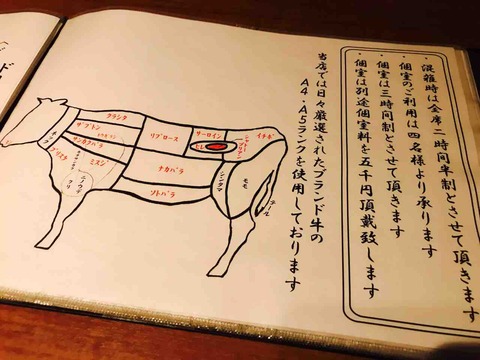 ・混雑時は全席二時間半制とさせて頂きます
・個室のご利用は四名様より承ります
・個室は三時間制とさせて頂きます
・個室は別途個室料を五千円頂戴致します
当店では日々厳選されたブランド牛の
A4・A5ランクを使用しております
クラシタ
ザブトン
サンカクバラ
ネック
ブリスケ
ミスジ
リブロース
サーロイン
ヒレ
イチボ
ナカバラ
ソトバラ
シンタマ
モモ
テール